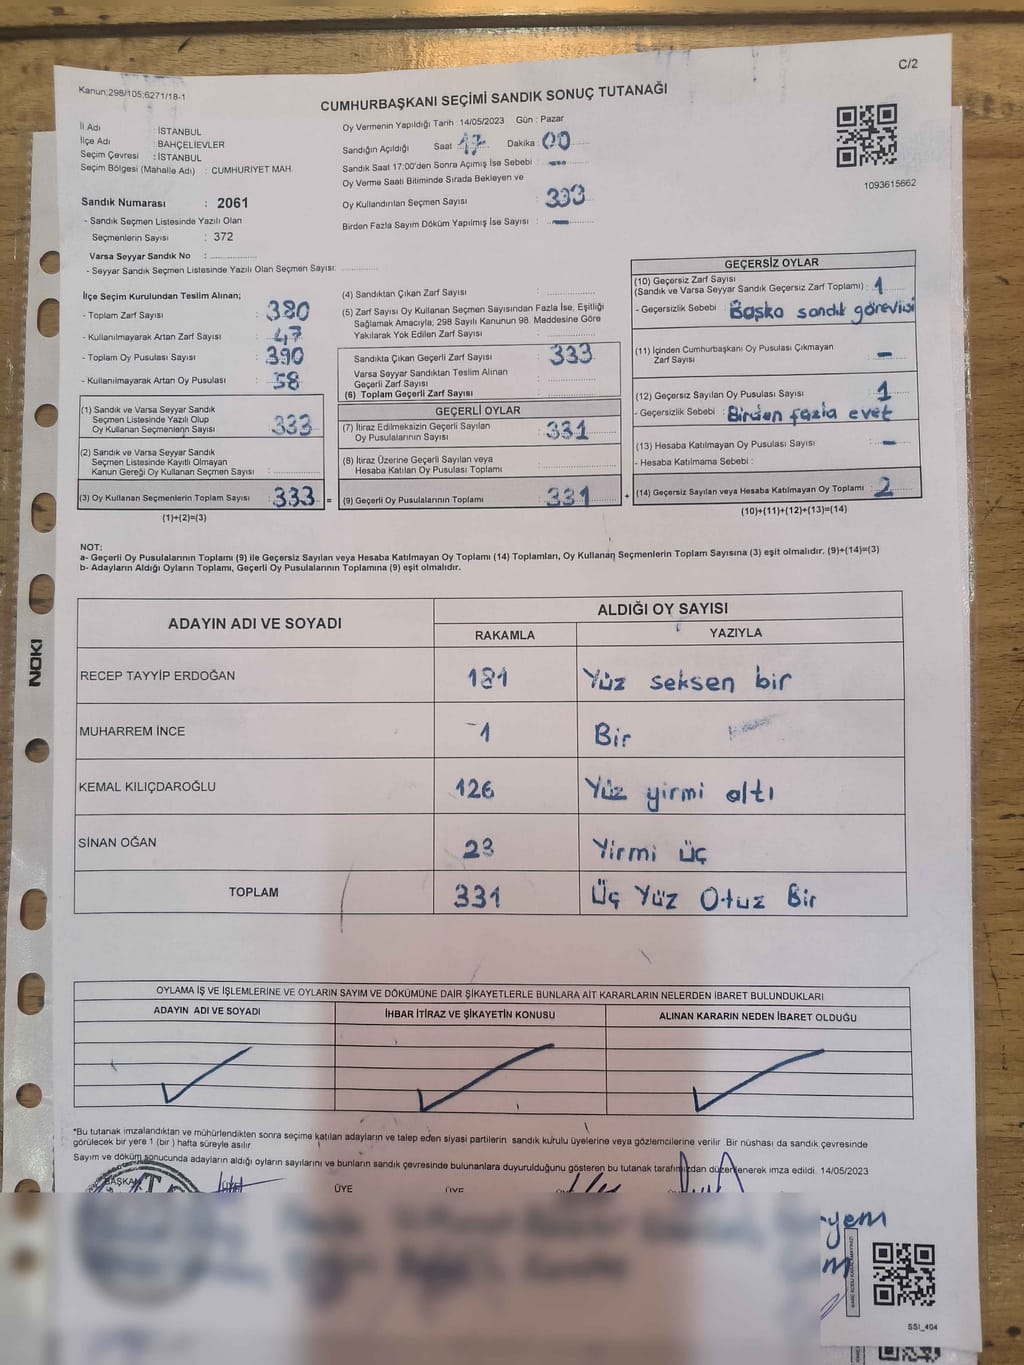 C/2
Kanun;298/105;6271/18-1
CUMHURBAŞKANI SEÇİMİ SANDIK SONUÇ TUTANAĞI
İl Adı : İSTANBUL
İlçe Adı : BAHÇELİEVLER
Seçim Çevresi : İSTANBUL
Seçim Bölgesi (Mahalle Adı) : CUMHURİYET MAH.
Sandık Numarası : 2061
- Sandık Seçmen Listesinde Yazılı Olan
Seçmenlerin Sayısı : 372
Varsa Seyyar Sandık No :
- Seyyar Sandık Seçmen Listesinde Yazılı Olan Seçmen Sayısı:
Oy Vermenin Yapıldığı Tarih : 14/05/2023 Gün : Pazar
Sandığın Açıldığı Saat : 17 Dakika : 00
Sandık Saat 17:00'den Sonra Açımış İse Sebebi : -
Oy Verme Saati Bitiminde Sırada Bekleyen ve
Oy Kullandırılan Seçmen Sayısı : 333
Birden Fazla Sayım Döküm Yapılmış İse Sayısı : -
1093615662
İlçe Seçim Kurulundan Teslim Alınan;
- Toplam Zarf Sayısı : 380
- Kullanılmayarak Artan Zarf Sayısı : 47
- Toplam Oy Pusulası Sayısı : 390
- Kullanılmayarak Artan Oy Pusulası : 58
(1) Sandık ve Varsa Seyyar Sandık
Seçmen Listesinde Yazılı Olup
Oy Kullanan Seçmenlerin Sayısı : 333
(2) Sandık ve Varsa Seyyar Sandık
Seçmen Listesinde Kayıtlı Olmayan
Kanun Gereği Oy Kullanan Seçmen Sayısı :
(3) Oy Kullanan Seçmenlerin Toplam Sayısı : 333 =
(1)+(2)=(3)
(4) Sandıktan Çıkan Zarf Sayısı :
(5) Zarf Sayısı Oy Kullanan Seçmen Sayısından Fazla İse, Eşitliği
Sağlamak Amacıyla; 298 Sayılı Kanunun 98. Maddesine Göre
Yakılarak Yok Edilen Zarf Sayısı :
Sandıkta Çıkan Geçerli Zarf Sayısı : 333
Varsa Seyyar Sandıktan Teslim Alınan
Geçerli Zarf Sayısı :
(6) Toplam Geçerli Zarf Sayısı :
GEÇERLİ OYLAR
(7) İtiraz Edilmeksizin Geçerli Sayılan
Oy Pusulalarının Sayısı : 331
(8) İtiraz Üzerine Geçerli Sayılan veya
Hesaba Katılan Oy Pusulası Toplamı :
(9) Geçerli Oy Pusulalarının Toplamı : 331 +
GEÇERSİZ OYLAR
(10) Geçersiz Zarf Sayısı
(Sandık ve Varsa Seyyar Sandık Geçersiz Zarf Toplamı) : 1
- Geçersizlik Sebebi : Başka sandık görevlisi
(11) İçinden Cumhurbaşkanı Oy Pusulası Çıkmayan
Zarf Sayısı : -
(12) Geçersiz Sayılan Oy Pusulası Sayısı : 1
- Geçersizlik Sebebi : Birden fazla evet
(13) Hesaba Katılmayan Oy Pusulası Sayısı : -
- Hesaba Katılmama Sebebi :
(14) Geçersiz Sayılan veya Hesaba Katılmayan Oy Toplamı : 2
(10)+(11)+(12)+(13)=(14)
NOT:
a- Geçerli Oy Pusulalarının Toplamı (9) ile Geçersiz Sayılan veya Hesaba Katılmayan Oy Toplamı (14) Toplamları, Oy Kullanan Seçmenlerin Toplam Sayısına (3) eşit olmalıdır. (9)+(14)=(3)
b- Adayların Aldığı Oyların Toplamı, Geçerli Oy Pusulalarının Toplamına (9) eşit olmalıdır.
ADAYIN ADI VE SOYADI
ALDIĞI OY SAYISI
RAKAMLA YAZIYLA
RECEP TAYYİP ERDOĞAN 181 Yüz seksen bir
MUHARREM İNCE 1 Bir
KEMAL KILIÇDAROĞLU 126 Yüz yirmi altı
SİNAN OĞAN 23 Yirmi üç
TOPLAM 331 Üç Yüz Otuz Bir
OYLAMA İŞ VE İŞLEMLERİNE VE OYLARIN SAYIM VE DÖKÜMÜNE DAİR ŞİKAYETLERLE BUNLARA AİT KARARLARIN NELERDEN İBARET BULUNDUKLARI
ADAYIN ADI VE SOYADI İHBAR İTİRAZ VE ŞİKAYETİN KONUSU ALINAN KARARIN NEDEN İBARET OLDUĞU
*Bu tutanak imzalandıktan ve mühürlendikten sonra seçime katılan adayların ve talep eden siyasi partilerin sandık kurulu üyelerine veya gözlemcilerine verilir. Bir nüshası da sandık çevresinde
görülecek bir yere 1 (bir ) hafta süreyle asılır.
Sayım ve döküm sonucunda adayların aldığı oyların sayılarını ve bunların sandık çevresinde bulunanlara duyurulduğunu gösteren bu tutanak tarafımızdan düzenlenerek imza edildi. 14/05/2023
BAŞKAN ÜYE ÜYE
SSI_404
NOKI